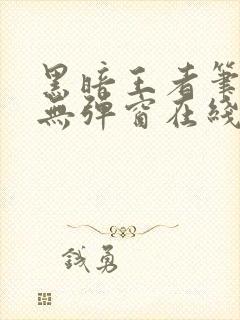 黑暗王者筆
無彈窗在綫
錢勇